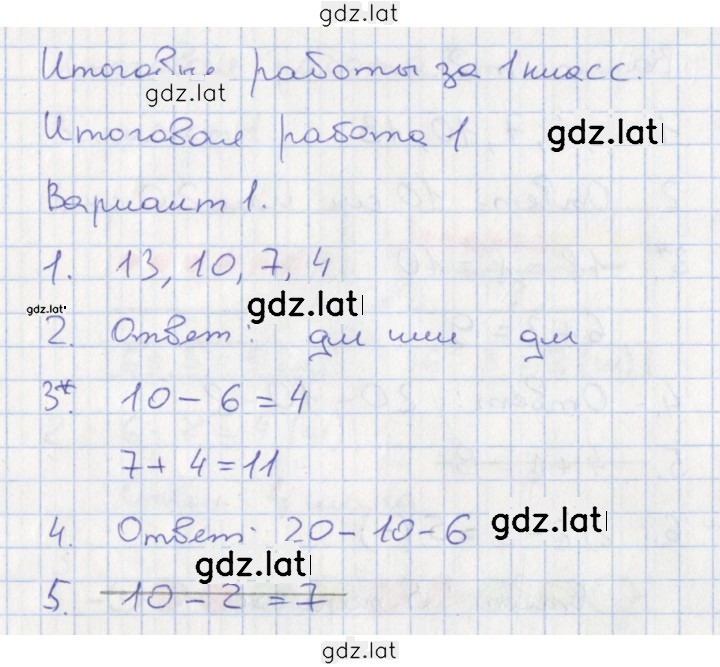 gdz.lat
Итоговые работы за 1 класс.
gdz.lat
Итоговая работа 1
gdz.lat
Вариант 1.
1. 13, 10, 7, 4
gdz.lat
gdz.lat
2. Ответ: дм или дм
3*. 10 - 6 = 4
7 + 4 = 11
4. Ответ: 20 - 10 - 6
gdz.lat
gdz.lat
5. 10 - 2 = 7
gdz.lat